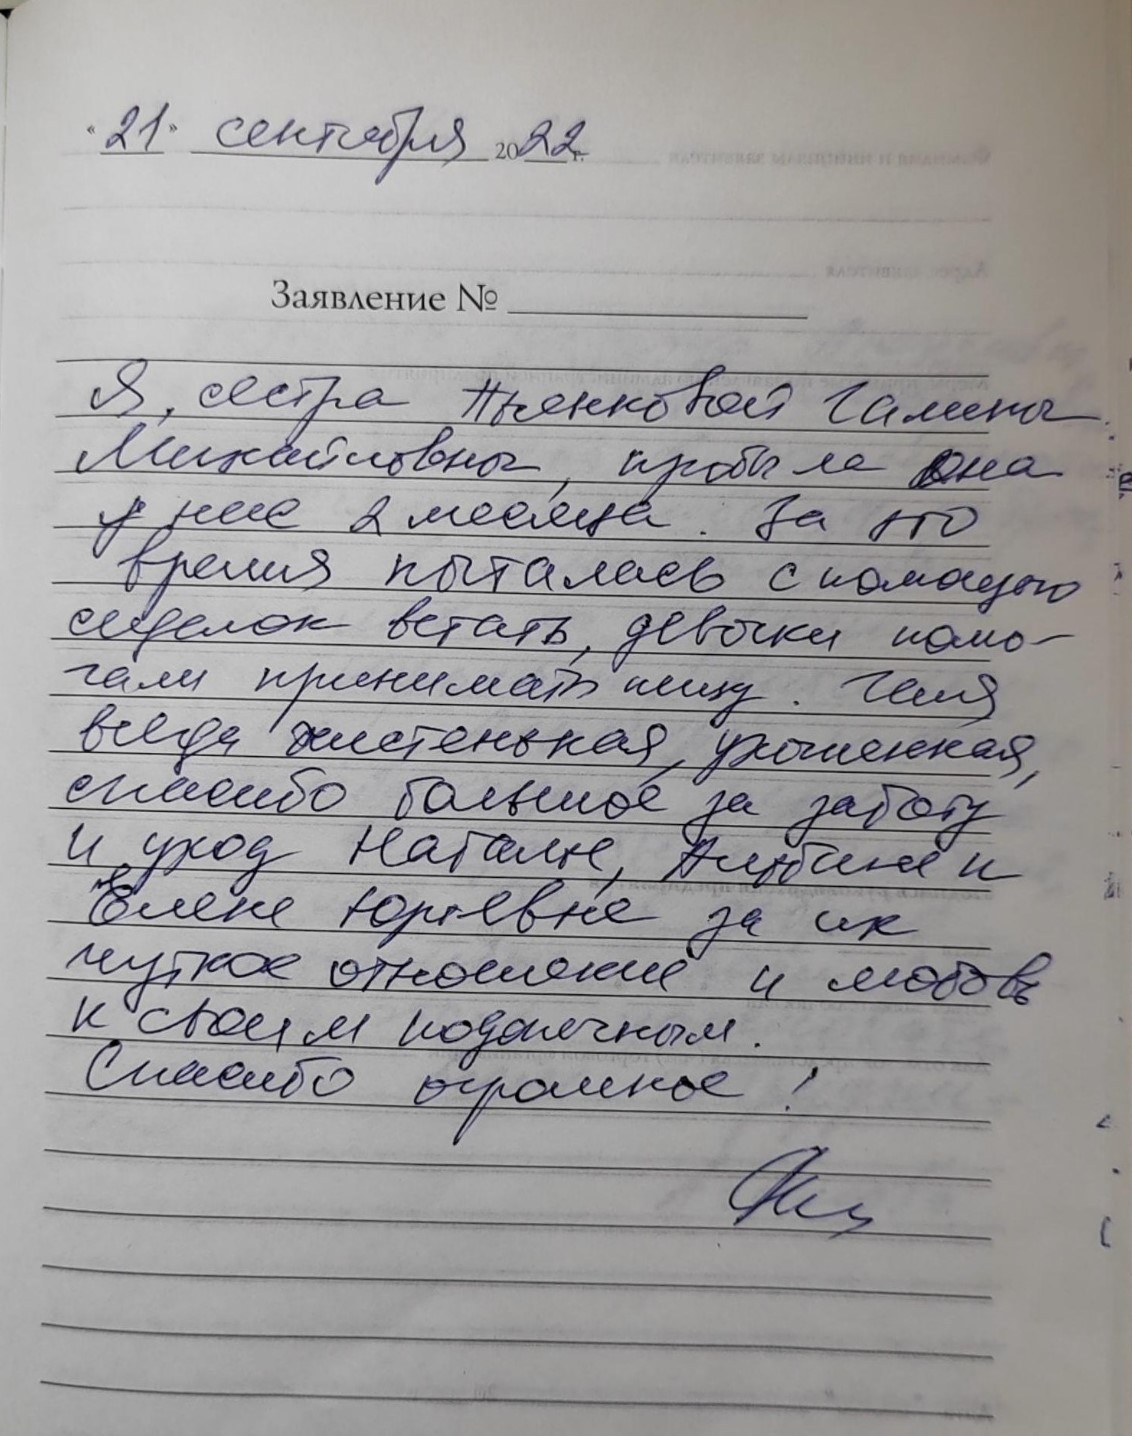 "21" сентября 2022 г.
Заявление №
Я, сестра Пьенковой Галины
Михайловны, пробыла она
у нас 2 месяца. За это
время пыталась с помощью
сиделок встать, девочки помо-
гали принимать пищу. Галя
всегда чистенькая, ухоженная,
спасибо большое за заботу
и уход Наталье, Альбине и
Елене Юрьевне за их
чуткое отношение и любовь
к своим подопечным.
Спасибо огромное!